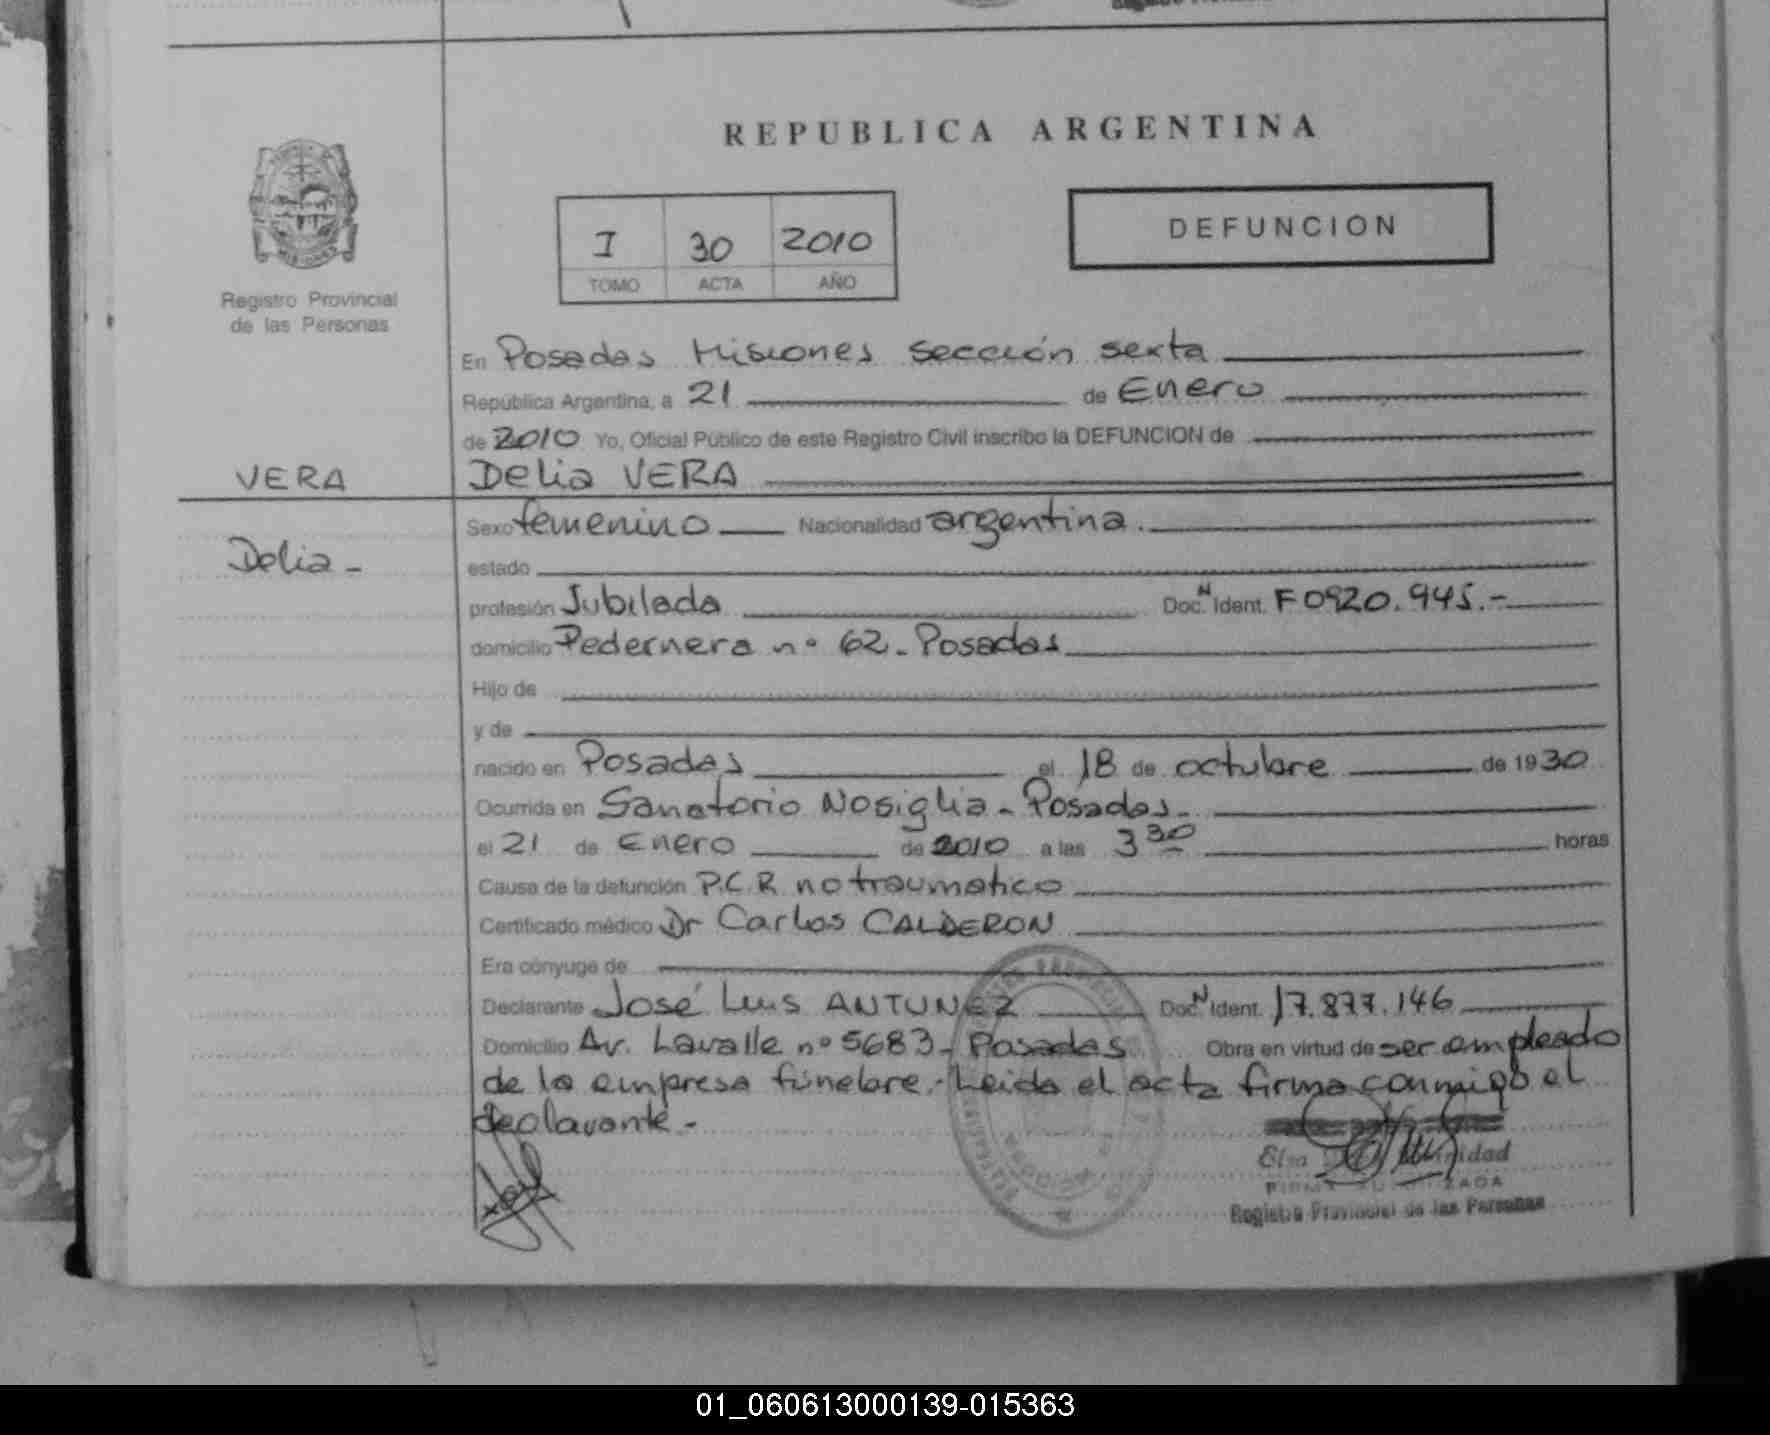 REPUBLICA ARGENTINA
I 30 2010
TOMO ACTA AÑO
DEFUNCION
MISIONES
Registro Provincial
de las Personas
En Posadas Misiones sección sexta
República Argentina, a 21 de Enero
de 2010 Yo, Oficial Público de este Registro Civil inscribo la DEFUNCION de
VERA
Delia VERA
Delia -
Sexo femenino Nacionalidad argentina.
estado
profesión Jubilada Doc. N Ident. F0920.945.-
domicilio Pedernera nº 62 - Posadas
Hijo de
y de
nacido en Posadas el 18 de octubre de 1930
Ocurrida en Sanatorio Nosiglia - Posadas -
el 21 de Enero de 2010 a las 3 30 horas
Causa de la defunción P.C.R. no traumatico
Certificado médico Dr Carlos CALDERON
Era cónyuge de
Declarante José Luis ANTUNEZ Doc. N Ident. 17.877.146
Domicilio Av. Lavalle nº 5683 - Posadas Obra en virtud de ser empleado
de la empresa fúnebre.- Leida el acta firma conmigo el
declarante -
Elsa
Registro Provincial de las Personas
01_060613000139-015363